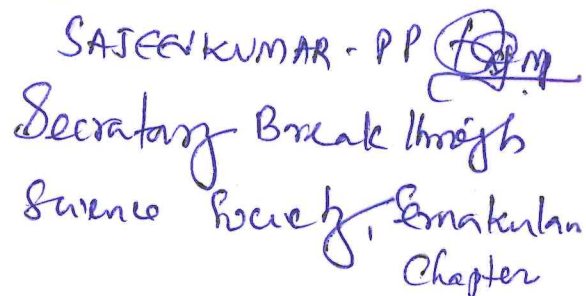 SAJEEVKUMAR - PP
Secratary Break through
Science Society, Ernakulam
Chapter